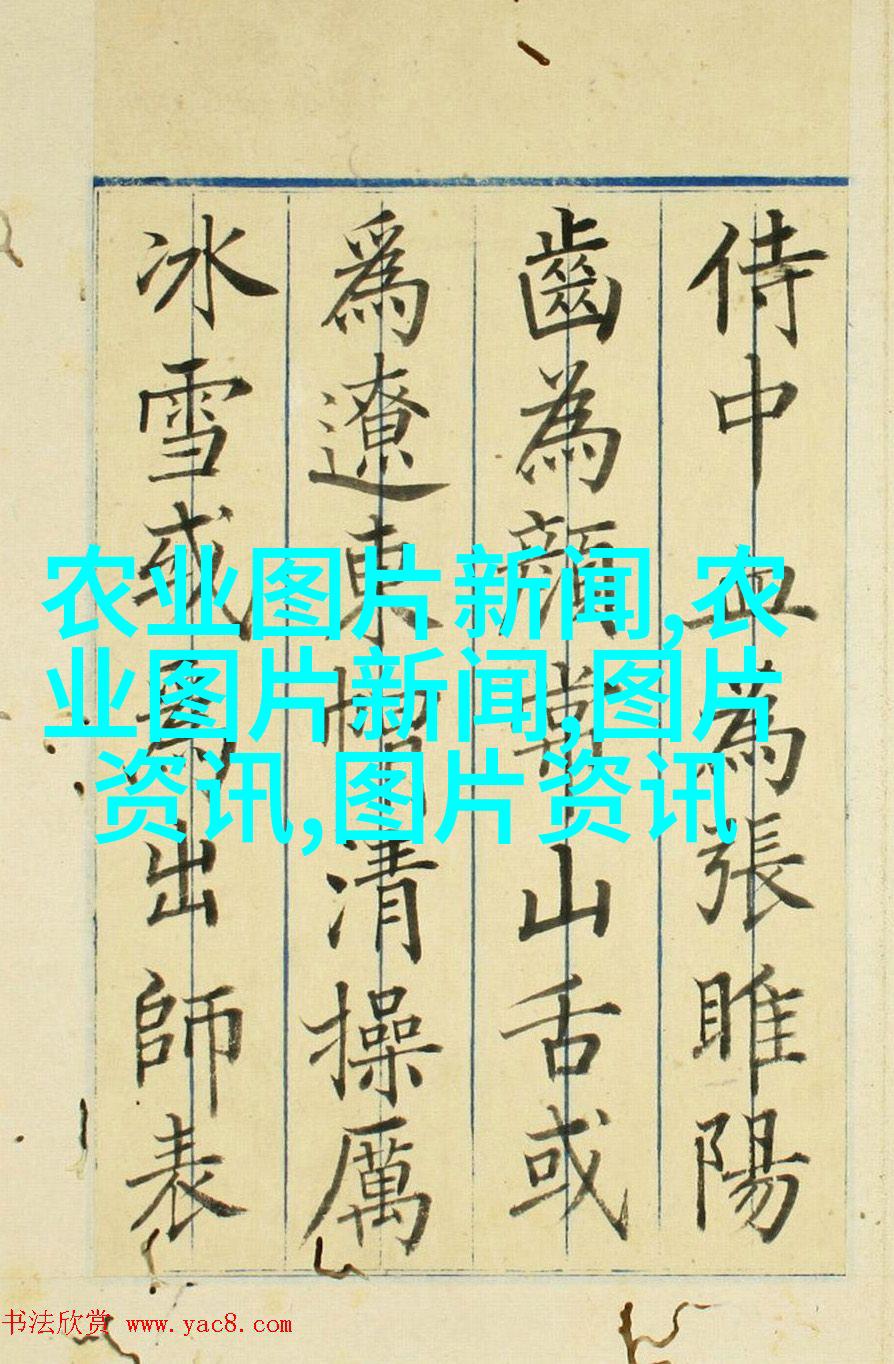 侍中血為張睢陽
齒為顏常山舌或
爲遼東帽清操厲
冰雪或爲出師表
农业图片新闻,农
业图片新闻,图片
资讯,图片资讯
书法欣赏 www.yac8.com